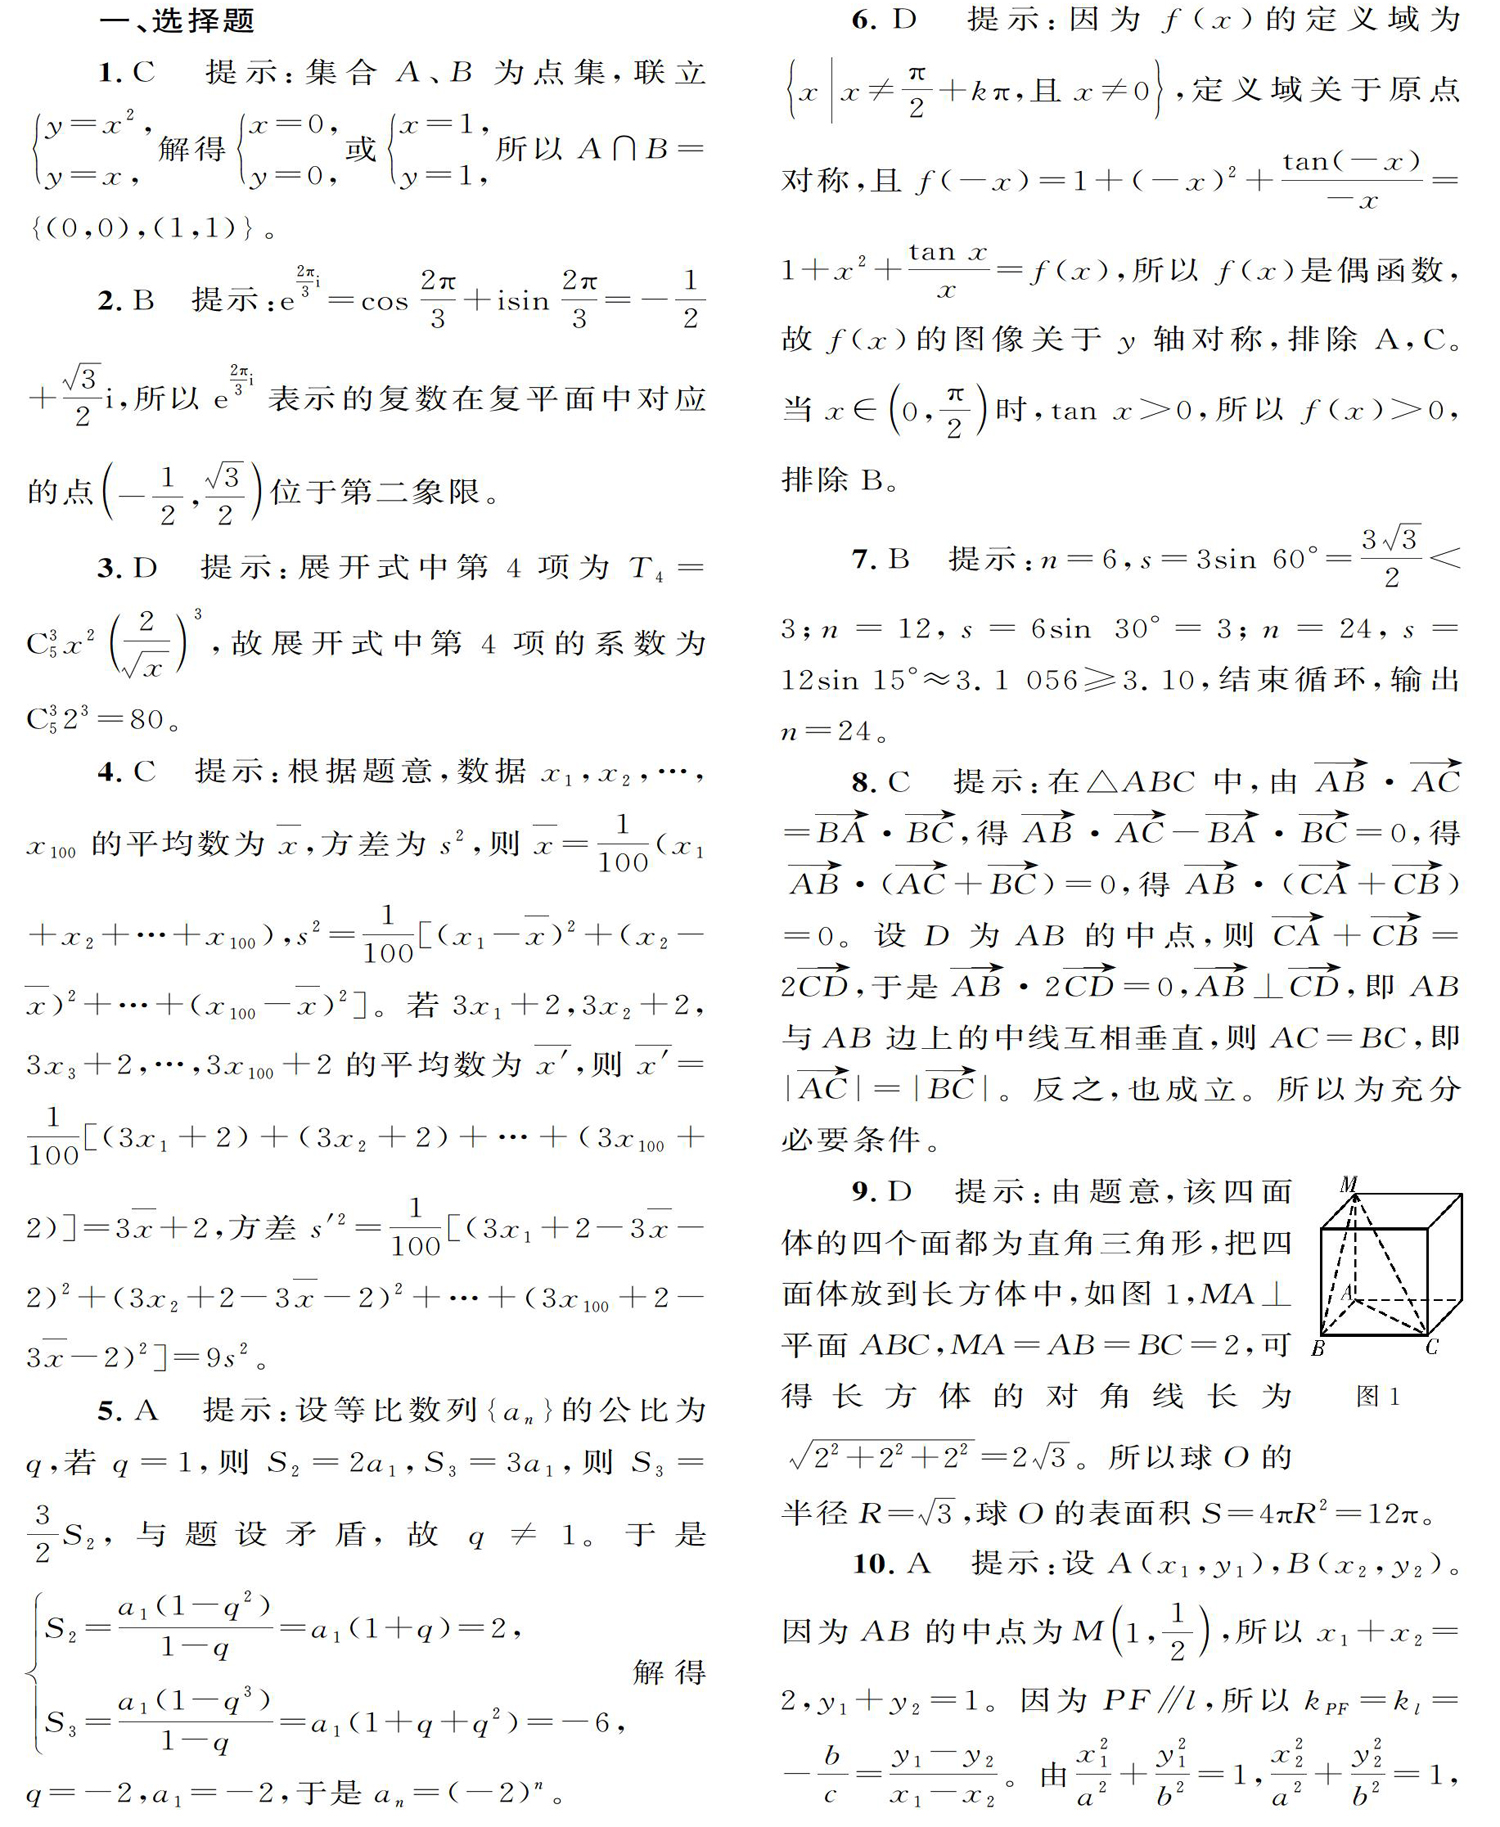 一、选择题
1. C 提示:集合 A、B 为点集,联立
{y=x², y=x, 解得{x=0, y=0, 或{x=1, y=1, 所以 A∩B=
{(0,0),(1,1)}。
2. B 提示:e^{2π/3 i}=cos 2π/3+isin 2π/3=-1/2
+√3/2 i,所以 e^{2π/3 i} 表示的复数在复平面中对应
的点(-1/2,√3/2)位于第二象限。
3. D 提示:展开式中第 4 项为 T₄=
C₅³x²(2/√x)³,故展开式中第 4 项的系数为
C₅³2³=80。
4. C 提示:根据题意,数据 x₁,x₂,…,
x₁₀₀ 的平均数为 x̄,方差为 s²,则 x̄=1/100(x₁
+x₂+…+x₁₀₀),s²=1/100[(x₁-x̄)²+(x₂-
x̄)²+…+(x₁₀₀-x̄)²]。若 3x₁+2,3x₂+2,
3x₃+2,…,3x₁₀₀+2 的平均数为 x̄′,则 x̄′=
1/100[(3x₁+2)+(3x₂+2)+…+(3x₁₀₀+
2)]=3x̄+2,方差 s′²=1/100[(3x₁+2-3x̄-
2)²+(3x₂+2-3x̄-2)²+…+(3x₁₀₀+2-
3x̄-2)²]=9s²。
5. A 提示:设等比数列{aₙ}的公比为
q,若 q=1,则 S₂=2a₁,S₃=3a₁,则 S₃=
3/2 S₂,与题设矛盾,故 q≠1。于是
{S₂=a₁(1-q²)/(1-q)=a₁(1+q)=2,
S₃=a₁(1-q³)/(1-q)=a₁(1+q+q²)=-6, 解得
q=-2,a₁=-2,于是 aₙ=(-2)ⁿ。
6. D 提示:因为 f(x)的定义域为
{x|x≠π/2+kπ,且 x≠0},定义域关于原点
对称,且 f(-x)=1+(-x)²+tan(-x)/-x=
1+x²+tan x/x=f(x),所以 f(x)是偶函数,
故 f(x)的图像关于 y 轴对称,排除 A,C。
当 x∈(0,π/2)时,tan x>0,所以 f(x)>0,
排除 B。
7. B 提示:n=6,s=3sin 60°=3√3/2<
3;n=12,s=6sin 30°=3;n=24,s=
12sin 15°≈3.1 056≥3.10,结束循环,输出
n=24。
8. C 提示:在△ABC 中,由 A⃗B⃗·A⃗C⃗
=B⃗A⃗·B⃗C⃗,得 A⃗B⃗·A⃗C⃗-B⃗A⃗·B⃗C⃗=0,得
A⃗B⃗·(A⃗C⃗+B⃗C⃗)=0,得 A⃗B⃗·(C⃗A⃗+C⃗B⃗)
=0。设 D 为 AB 的中点,则 C⃗A⃗+C⃗B⃗=
2C⃗D⃗,于是 A⃗B⃗·2C⃗D⃗=0,A⃗B⃗⊥C⃗D⃗,即 AB
与 AB 边上的中线互相垂直,则 AC=BC,即
|A⃗C⃗|=|B⃗C⃗|。反之,也成立。所以为充分
必要条件。
9. D 提示:由题意,该四面
体的四个面都为直角三角形,把四
面体放到长方体中,如图 1,MA⊥
平面 ABC,MA=AB=BC=2,可
得长方体的对角线长为
√(2²+2²+2²)=2√3。所以球 O 的
半径 R=√3,球 O 的表面积 S=4πR²=12π。
M
A
B
C
图 1
10. A 提示:设 A(x₁,y₁),B(x₂,y₂)。
因为 AB 的中点为 M(1,1/2),所以 x₁+x₂=
2,y₁+y₂=1。因为 PF∥l,所以 k_PF=k_l=
-b/c=(y₁-y₂)/(x₁-x₂)。由 x₁²/a²+y₁²/b²=1,x₂²/a²+y₂²/b²=1,